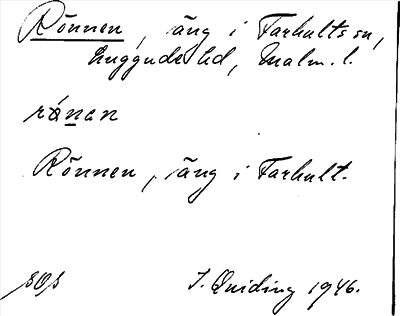 Rönnen, äng i Farhults sn,
Luggude hd, Malm. l.
rånan
Rönnen, äng i Farhult.
SOs
I. Quiding 1946.